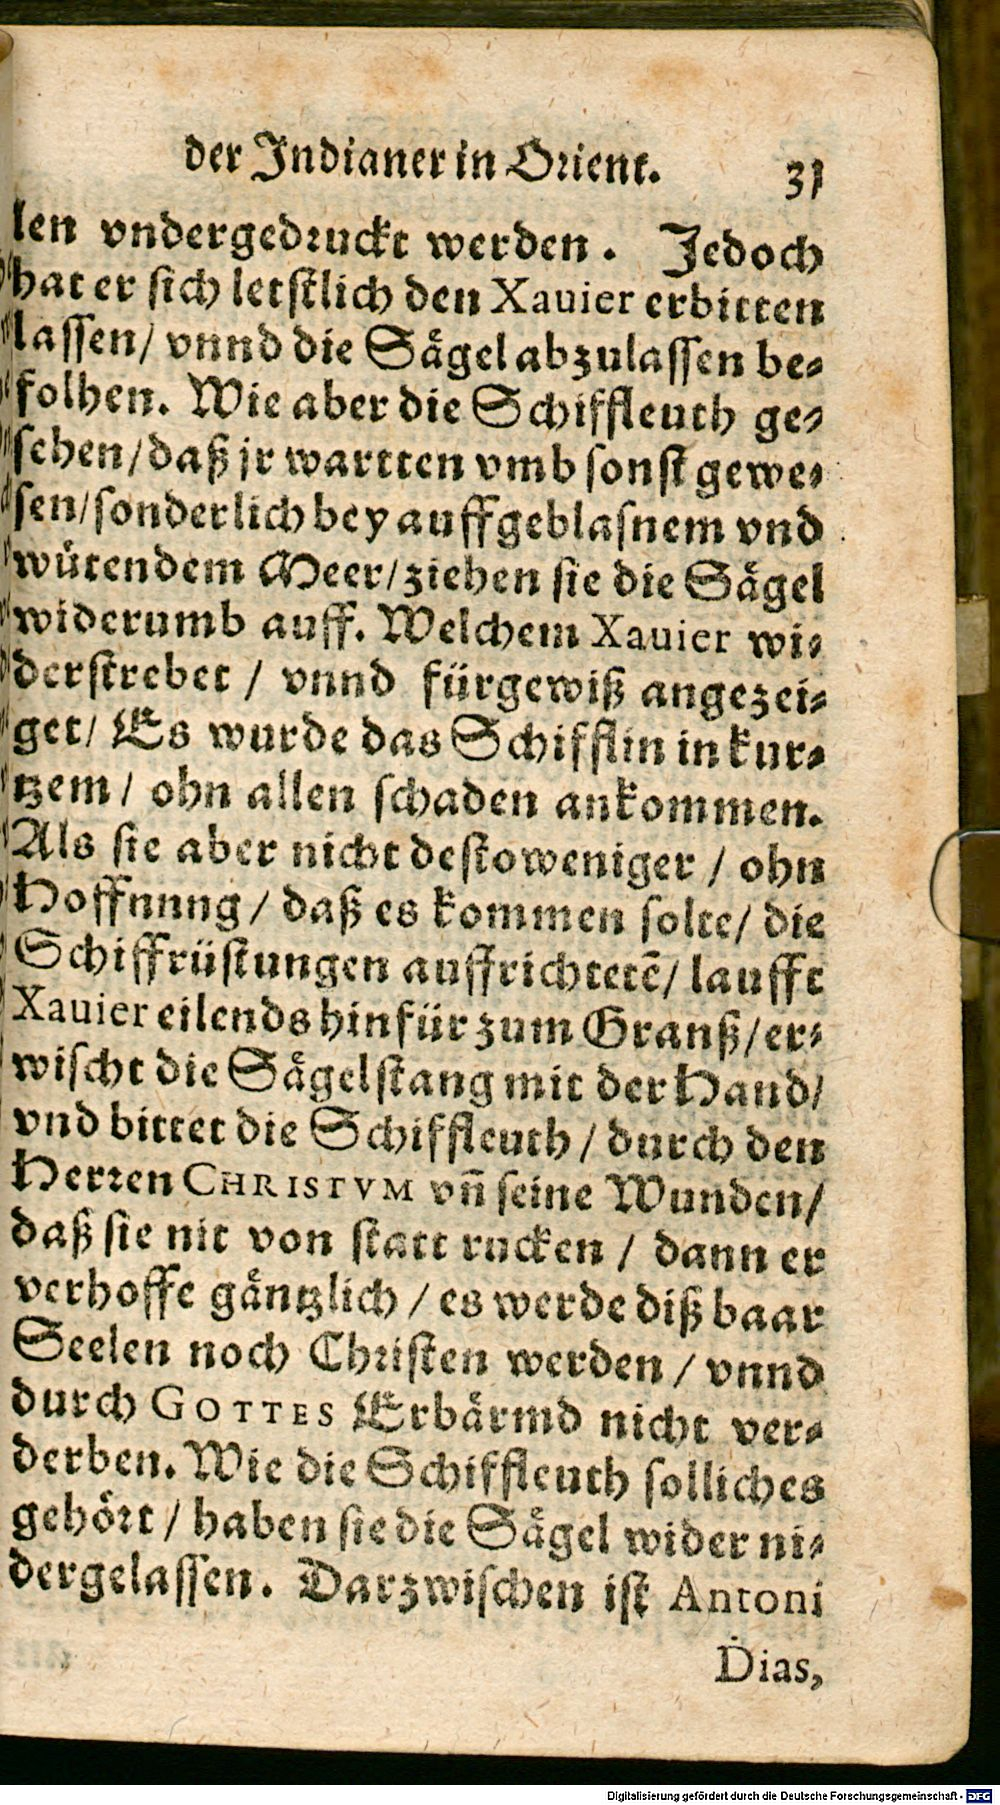 der Indianer in Orient. 31
len vndergedruckt werden. Jedoch
hat er sich letstlich den Xauier erbitten
lassen/ vnnd die Sågel abzulassen be-
folhen. Wie aber die Schiffleuth ge-
sehen/ daß jr wartten vmb sonst gewe-
sen/ sonderlich bey auffgeblasnem vnd
wůtendem Meer/ ziehen sie die Sågel
widerumb auff. Welchem Xauier wi-
derstrebet / vnnd fürgewiß angezei-
get/ Es wurde das Schifflin in kur-
tzem / ohn allen schaden ankommen.
Als sie aber nicht destoweniger / ohn
Hoffnung / daß es kommen solte/ die
Schiffrüstungen auffrichtetẽ/ laufft
Xauier eilends hinfür zum Granß/ er-
wischt die Sågelstang mit der Hand/
vnd bittet die Schiffleuth / durch den
Herren CHRISTVM vñ seine Wunden/
daß sie nit von statt rucken / dann er
verhoffe gåntzlich / es werde diß baar
Seelen noch Christen werden / vnnd
durch GOTTES Erbårmd nicht ver-
derben. Wie die Schiffleuth solliches
gehört / haben sie die Sågel wider ni-
dergelassen. Darzwischen ist Antoni
Dias,
Digitalisierung gefördert durch die Deutsche Forschungsgemeinschaft - DFG